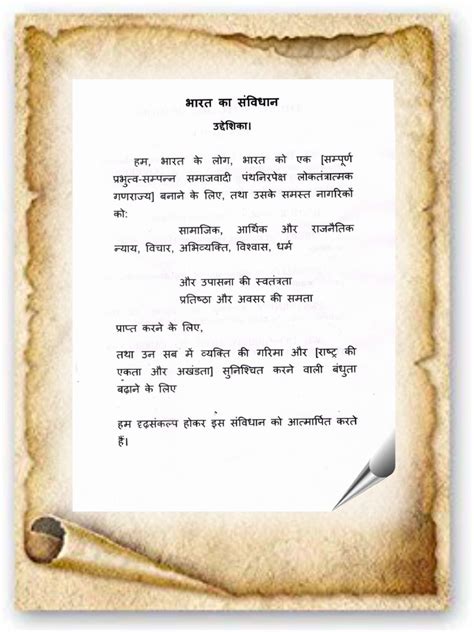 भारत का संविधान
उद्देशिका।
हम, भारत के लोग, भारत को एक [सम्पूर्ण
प्रभुत्व-सम्पन्न समाजवादी पंथनिरपेक्ष लोकतंत्रात्मक
गणराज्य] बनाने के लिए, तथा उसके समस्त नागरिकों
को:
सामाजिक, आर्थिक और राजनैतिक
न्याय, विचार, अभिव्यक्ति, विश्वास, धर्म
और उपासना की स्वतंत्रता
प्रतिष्ठा और अवसर की समता
प्राप्त करने के लिए,
तथा उन सब में व्यक्ति की गरिमा और [राष्ट्र की
एकता और अखंडता] सुनिश्चित करने वाली बंधुता
बढ़ाने के लिए
हम दृढ़संकल्प होकर इस संविधान को आत्मार्पित करते
हैं।